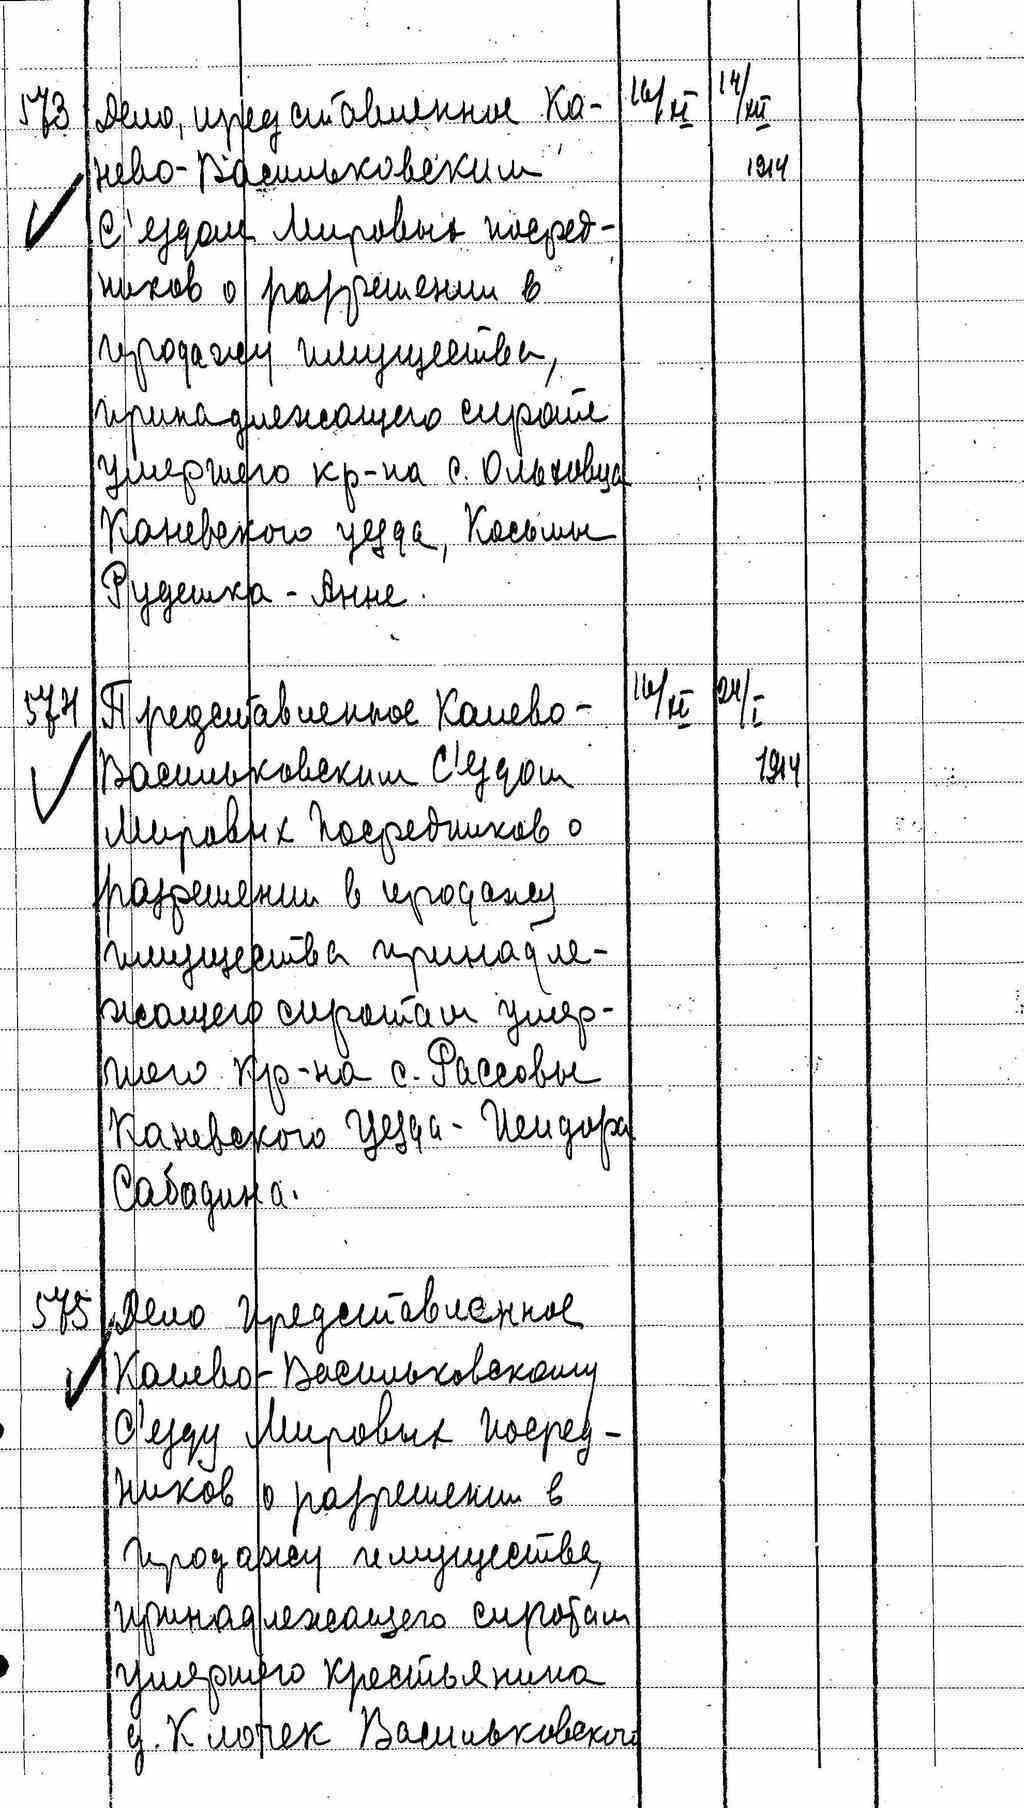 573 Дело, представленное Ка- 16/XI 14/XII
нево-Васильковским 1914
С'ездом Мировых посред-
ников о разрешении в
продажу имущества,
принадлежащего сироте
умершего кр-на с. Ольховца
Каневского уезда, Косьмы
Рудешка - Анне.
574 Представленное Канево- 16/XI 24/I
Васильковским С'ездом 1914
Мировых Посредников о
разрешении в продажу
имущества принадле-
жащего сиротам умер-
шего кр-на с. Рассовы
Каневского Уезда - Исидора
Сабадина.
575 Дело Представленное
Канево-Васильковскому
С'езду Мировых Посред-
ников о разрешении в
продажу имущества,
принадлежащего сиротам
умершего крестьянина
д. Клочек Васильковского